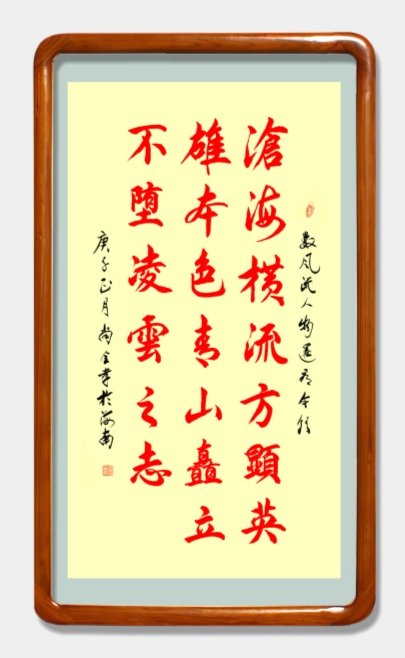 数风流人物還看今朝
滄海横流方顯英
雄本色青山矗立
不堕凌雲之志
庚子正月尚於海南